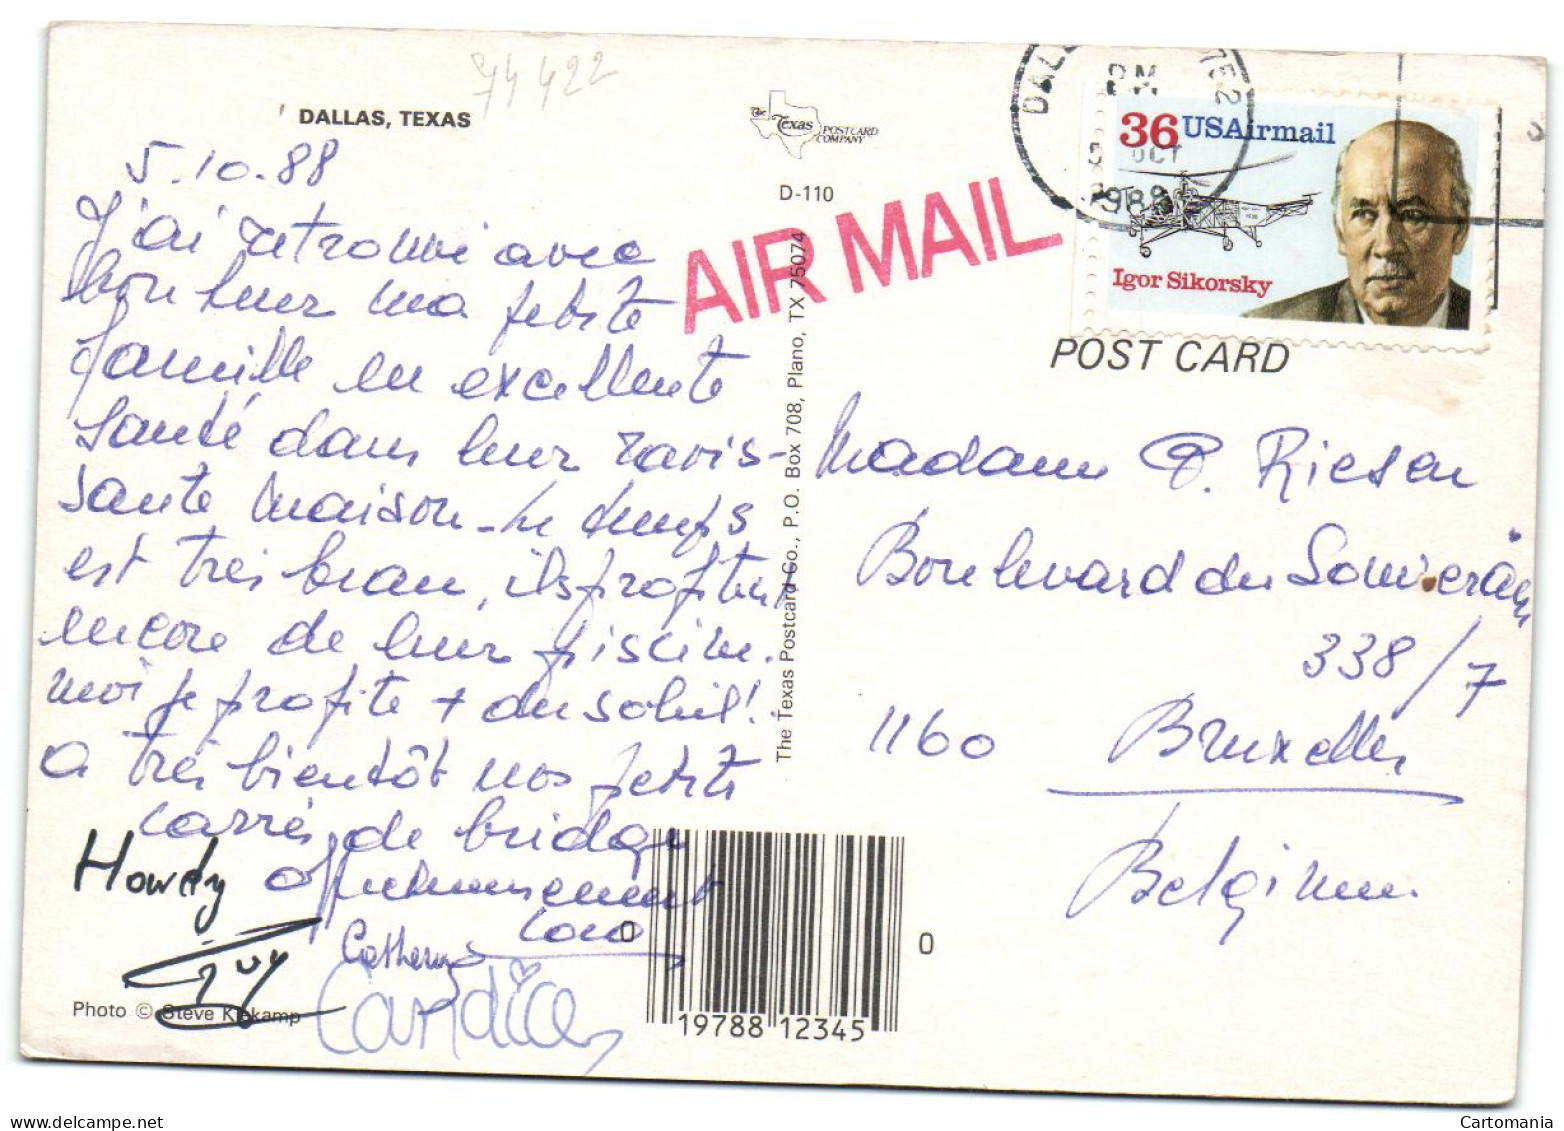 74422
DALLAS, TEXAS
5.10.88
J'ai retrouvé avec
bonheur ma petite
famille en excellente
santé dans leur ravis-
sante maison - Le temps
est très beau, ils profitent
encore de leur piscine.
Moi je profite + du soleil!
A très bientôt nos petits
carrés de bridge
affectueusement
Coco
Howdy
Guy
Catherine
Candice
Photo © Steve Kiekamp
The Texas
POSTCARD
COMPANY
D-110
AIR MAIL
The Texas Postcard Co., P.O. Box 708, Plano, TX 75074
DALL 752
PM
5 OCT
1988
36 USAirmail
Igor Sikorsky
POST CARD
Madame P. Riesen
Boulevard du Souverain
338/7
1160 Bruxelles
Belgium
0 19788 12345 0
delcampe.net
Cartomania